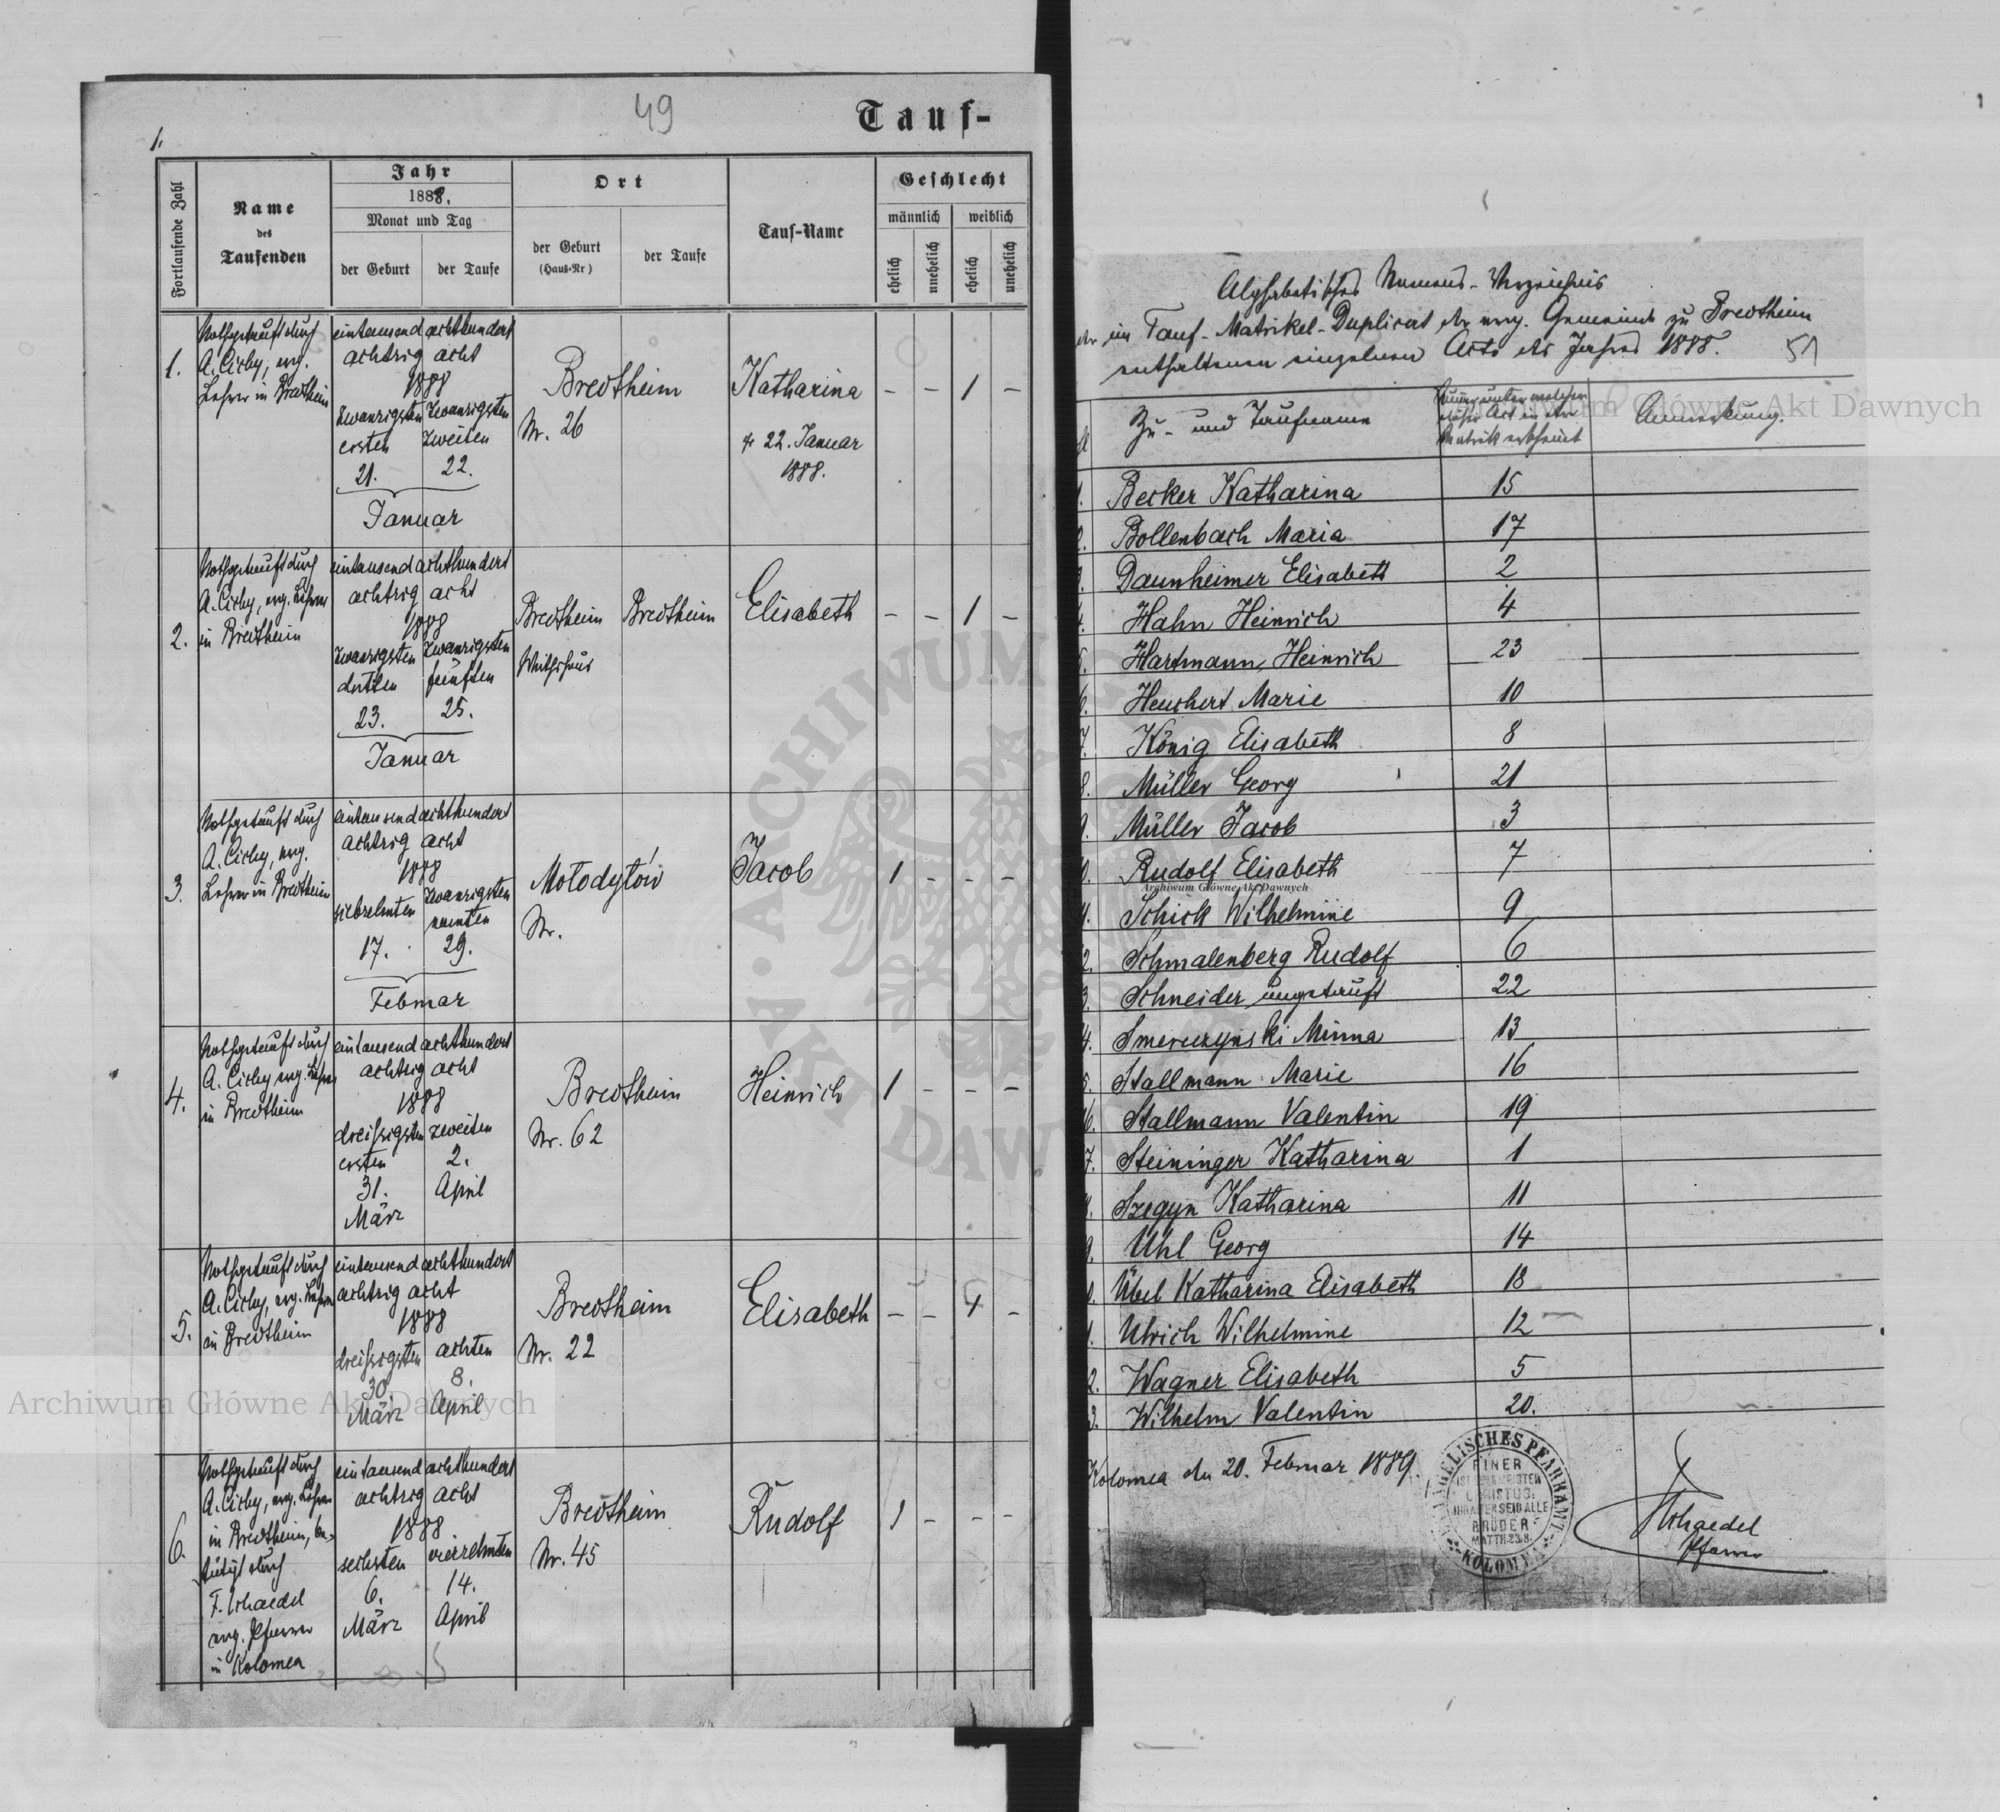 49
Tauf-
1.
Fortlaufende Zahl
Name
des
Taufenden
Jahr
1888.
Monat und Tag
der Geburt
der Taufe
Ort
der Geburt
(Haus-Nr)
der Taufe
Tauf-Name
Geschlecht
männlich
weiblich
ehelich
unehelich
ehelich
unehelich
1.
Nothgetauft durch
A. Cichy, evg.
Lehrer in Bredtheim
eintausend achthundert
achtzig acht
1888
zwanzigsten
ersten
21.
zwanzigsten
zweiten
22.
Januar
Bredtheim
Nr. 26
Katharina
† 22. Januar
1888.
– – 1 –
2.
Nothgetauft durch
A. Cichy, evg. Lehrer
in Bredtheim
eintausend achthundert
achtzig acht
1888
zwanzigsten
dritten
23.
zwanzigsten
fünften
25.
Januar
Bredtheim
Bredtheim
Elisabeth
– – 1 –
3.
Nothgetauft durch
A. Cichy, evg.
Lehrer in Bredtheim
eintausend achthundert
achtzig acht
1888
siebzehnten
17.
zwanzigsten
neunten
29.
Februar
Mołodytów
Nr.
Jacob
1 – – –
4.
Nothgetauft durch
A. Cichy evg. Lehrer
in Bredtheim
eintausend achthundert
achtzig acht
1888
dreissigsten
ersten
31.
März
zweiten
2.
April
Bredtheim
Nr. 62
Heinrich
1 – – –
5.
Nothgetauft durch
A. Cichy, evg. Lehrer
in Bredtheim
eintausend achthundert
achtzig acht
1888
dreissigsten
30.
März
achten
8.
April
Bredtheim
Nr. 22
Elisabeth
– – 1 –
6.
Nothgetauft durch
A. Cichy, evg. Lehrer
in Bredtheim, be-
stätigt durch
F. Schaedel
evg. Pfarrer
in Kolomea
eintausend achthundert
achtzig acht
1888
sechsten
6.
März
vierzehnten
14.
April
Bredtheim
Nr. 45
Rudolf
1 – – –
Alphabetisches Namens-Verzeichnis
der im Tauf-Matrikel-Duplicat der evg. Gemeinde zu Bredtheim
enthaltenen einzelnen Acte des Jahres 1888.
51
Zu- und Taufname
Nummer unter welcher
dieser Act in der
Matrik erscheint
Anmerkung.
Becker Katharina 15
Bollenbach Maria 17
Daunheimer Elisabeth 2
Hahn Heinrich 4
Hartmann, Heinrich 23
Heuchert Marie 10
König Elisabeth 8
Müller Georg 21
Müller Jacob 3
Rudolf Elisabeth 7
Schick Wilhelmine 9
Schmalenberg Rudolf 6
Schneider ungetauft 22
Smerczynski Minna 13
Stallmann Marie 16
Stallmann Valentin 19
Steininger Katharina 1
Szegyn Katharina 11
Uhl Georg 14
Übel Katharina Elisabeth 18
Ulrich Wilhelmine 12
Wagner Elisabeth 5
Wilhelm Valentin 20.
Kolomea den 20. Februar 1889.
EVANGELISCHES PFARRAMT
KOLOMEA
EINER
IST EUER MEISTER
CHRISTUS
IHR ABER SEID ALLE
BRÜDER
MATTH. 23.8.
Schaedel
Pfarrer
Archiwum Główne Akt Dawnych
Archiwum Główne Akt Dawnych
Archiwum Główne Akt Dawnych